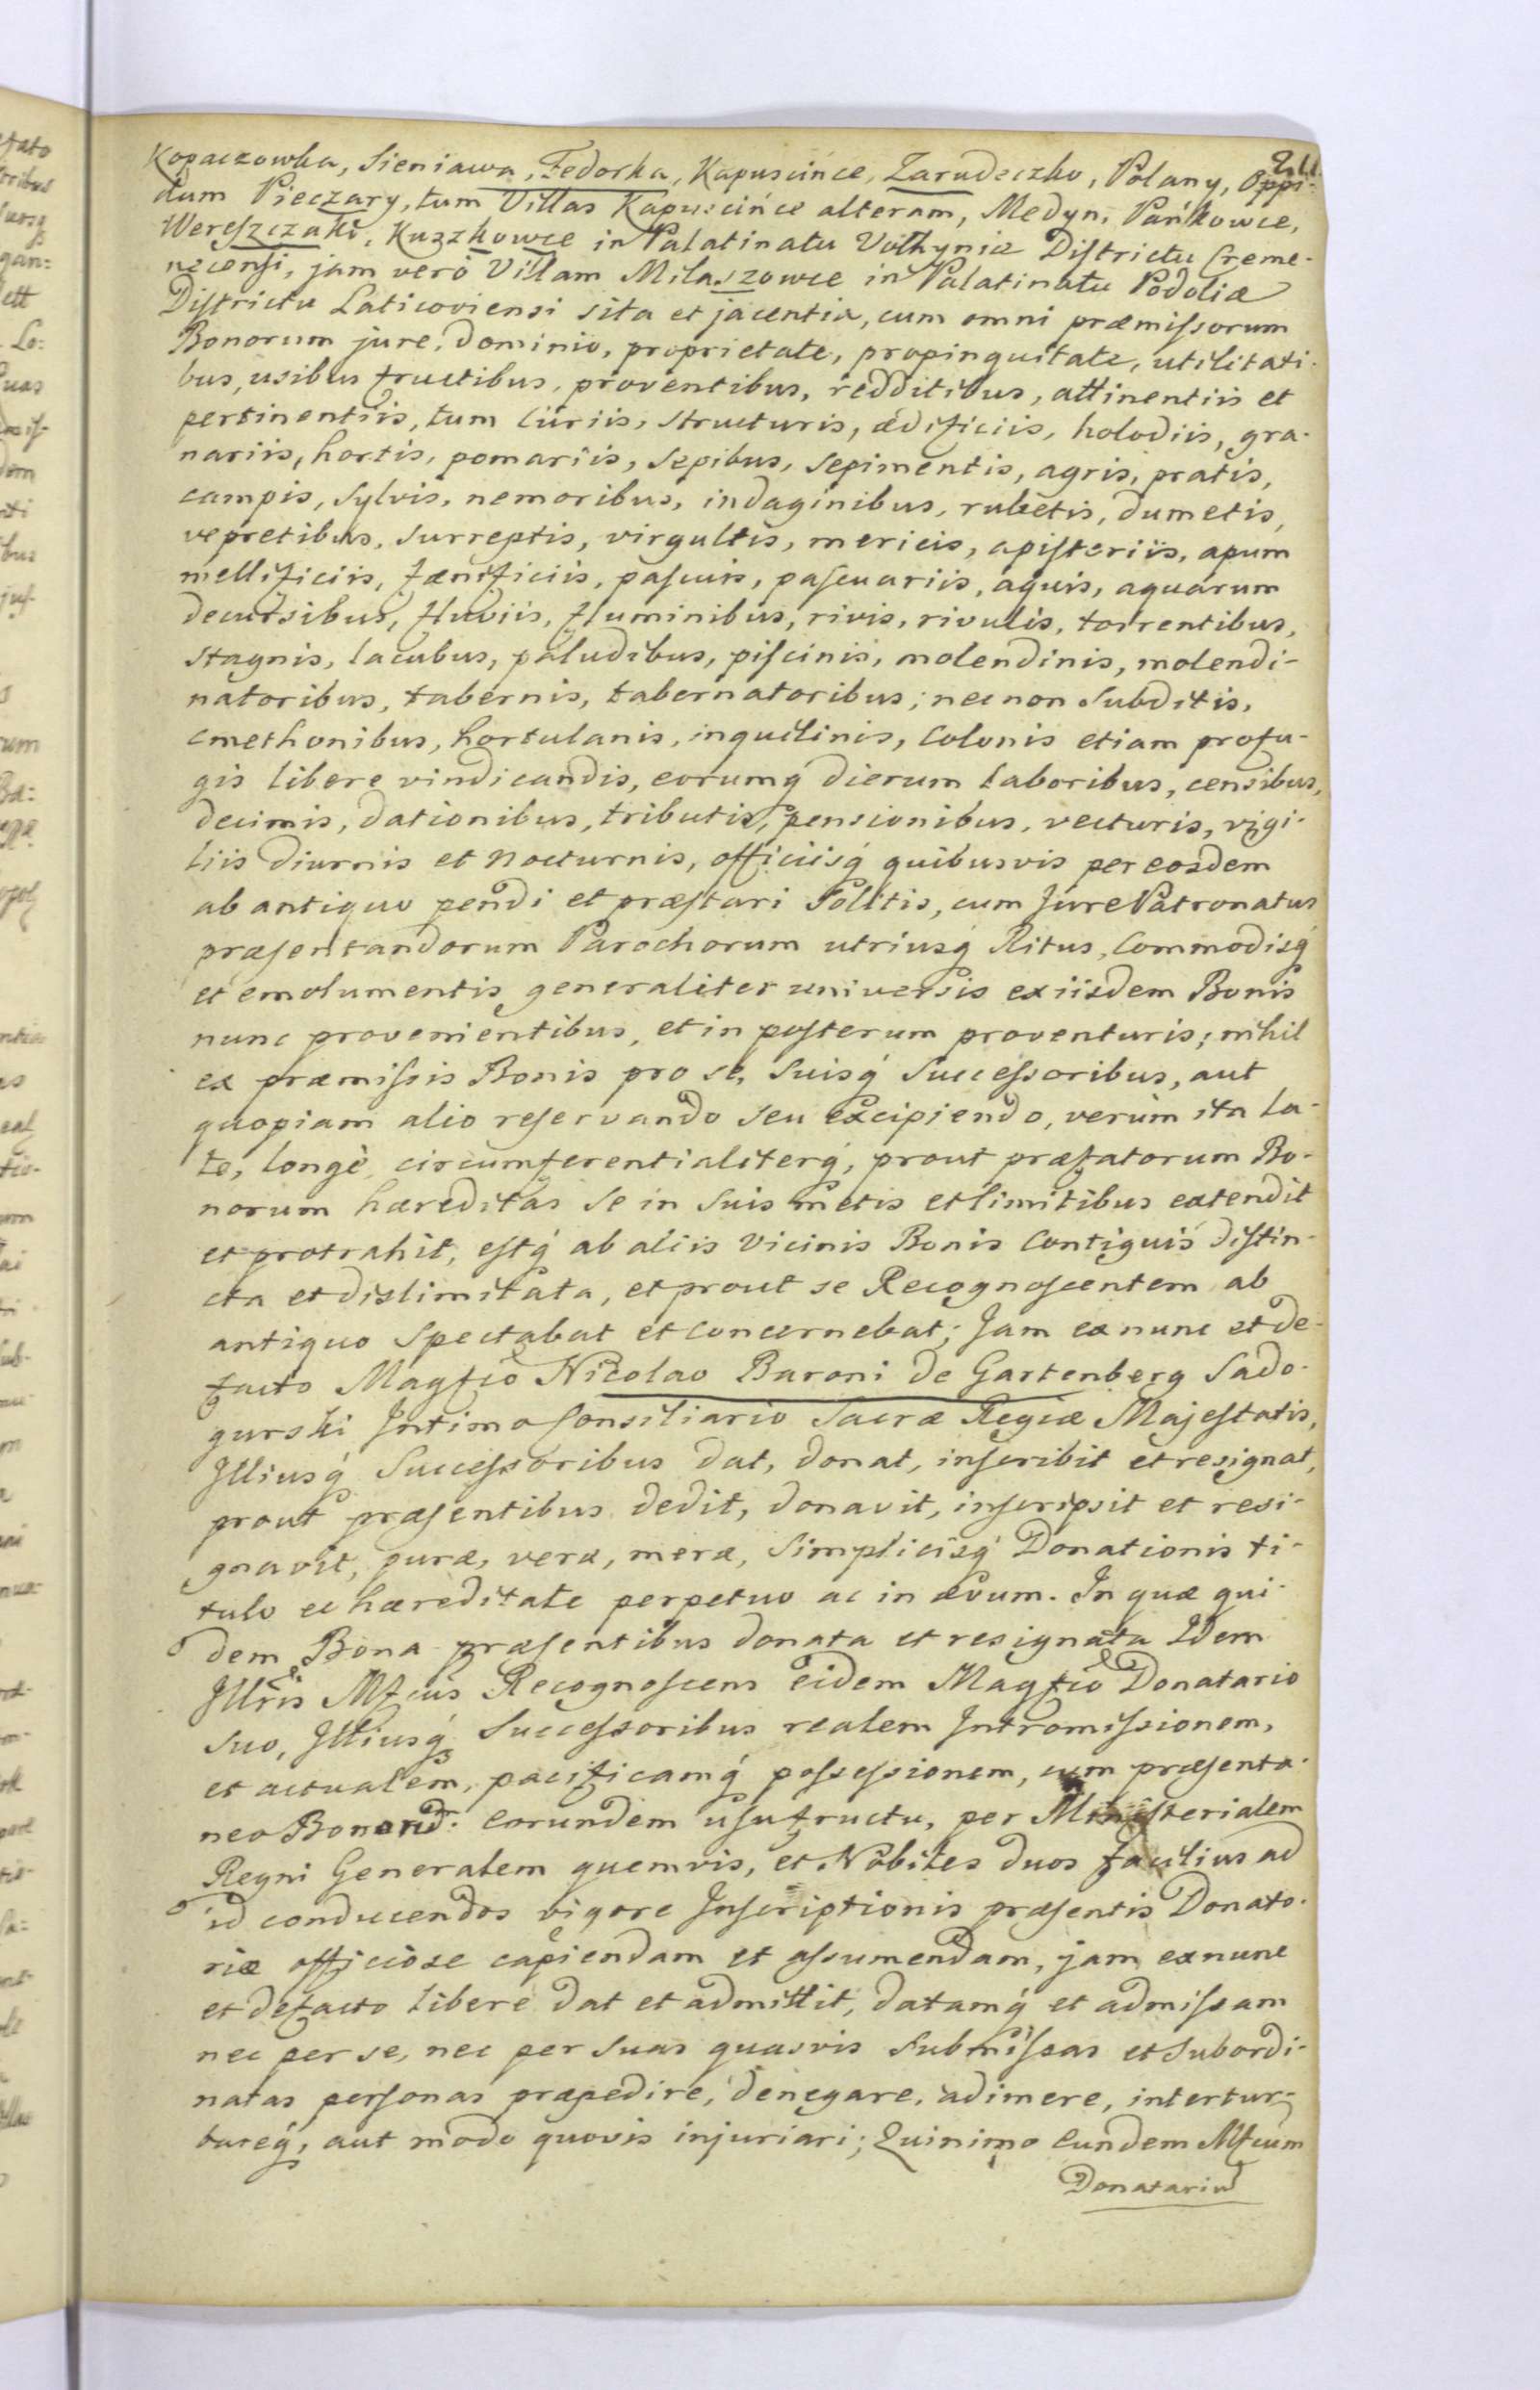 Kopaczowka, Sieniawa, Fedorka, Kapuscińce, Zarudeczko, Polany, Oppi-
dum Pieczary, tum Villas Kapuscińce alteram, Medyn, Pańkowce,
Wereszczaki, Kuszkowce in Palatinatu Volhyniæ Districtu Creme-
necensi, jam verò Villam Milaszowce in Palatinatu Podoliæ
Districtu Laticoviensi sita et jacentia, cum omni præmissorum
Bonorum jure, dominio, proprietate, propinquitate, utilitati-
bus, usibus fructibus, proventibus, redditibus, attinentiis et
pertinentiis, tum Curiis, structuris, ædificiis, holodiis, gra-
nariis, hortis, pomariis, sepibus, sepimentis, agris, pratis,
campis, sylvis, nemoribus, indaginibus, rubetis, dumetis,
vepretibus, surreptis, virgultis, mericis, apisteriis, apum
mellificiis, fænificiis, pascuis, pascuariis, aquis, aquarum
decursibus, fluviis, fluminibus, rivis, rivulis, torrentibus,
stagnis, lacubus, paludibus, piscinis, molendinis, molendi-
natoribus, tabernis, tabernatoribus; necnon Subditis,
Cmethonibus, hortulanis, inquilinis, Colonis etiam profu-
gis libere vindicandis, eorumq́ dierum laboribus, censibus,
decimis, dationibus, tributis, pensionibus, vecturis, vigi-
liis diurnis et nocturnis, officiisq́ quibusvis per eosdem
ab antiquo pendi et præstari Solitis, cum Jure Patronatus
præsentandorum Parochorum utriusq́ Ritus, Commodisq́
et emolumentis generaliter universis ex iisdem Bonis
nunc provenientibus, et in posterum proventuris; nihil
ex præmissis Bonis pro se, Suisq́ Successoribus, aut
quopiam alio reservando seu excipiendo, verùm ita la-
te, longè, circumferentialiterq́, prout præfatorum Bo-
norum hæreditas se in suis metis et limitibus extendit
et protrahit, estq́ ab aliis Vicinis Bonis Contiguis distin-
cta et dislimitata, et prout se Recognoscentem ab
antiquo Spectabat et Concernebat; Jam ex nunc et de-
facto Magfcô Nicolao Baroni de Gartenberg Sado-
gurski Intimo Consiliario Sacræ Regiæ Majestatis,
Illiusq́ Successoribus dat, donat, inscribit et resignat,
prout præsentibus dedit, donavit, inscripsit et resi-
gnavit, puræ, veræ, meræ, Simplicisq́ Donationis ti-
tulo ec hæreditate perpetuo ac in ævum. In quæ qui-
dem Bona præsentibus donata et resignata Idem
Illris Mfcus Recognoscens eidem Magfcô Donatario
Suo, Illiusq́ Successoribus realem Intromissionem,
et actualem, pacificamq́ possessionem, cum præsenta-
neo Bonord: eorundem usufructu, per Ministerialem
Regni Generalem quemvis, et Nobiles duos facilius ad
id conducendos vigore Inscriptionis præsentis Donato-
riæ officiose capiendam et assumendam, jam ex nunc
et defacto libere dat et admittit, datamq́ et admissam
nec per se, nec per suas quasvis Submissas et Subordi-
natas personas præpedire, denegare, adimere, intertur-
bareq́, aut modo quovis injuriari; Quinimo Eundem Mfcum
Donatariũ